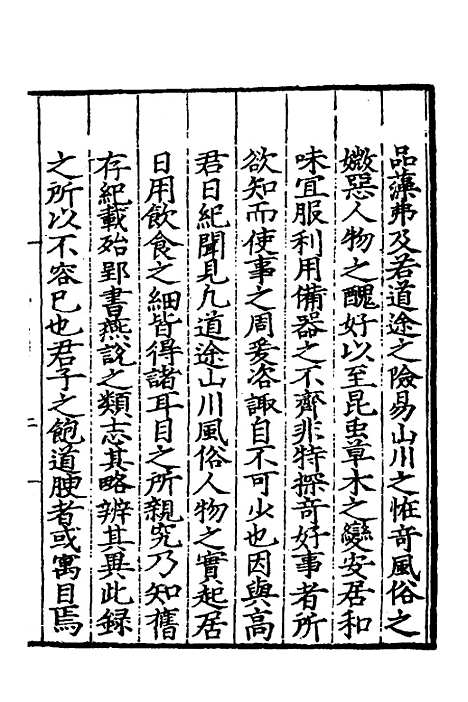 品藻弗及若道途之險易山川之恠竒風俗之
媺惡人物之醜好以至昆虫草木之變安居和
味宜服利用備器之不齊非特探竒好事者所
欲知而使事之周爰咨諏自不可少也因與高
君日紀聞見凢道途山川風俗人物之實起居
日用飲食之細皆得諸耳目之所親究乃知舊
存紀載殆郢書燕說之類志其略辨其異此録
之所以不容已也君子之飽道腴者或寓目焉